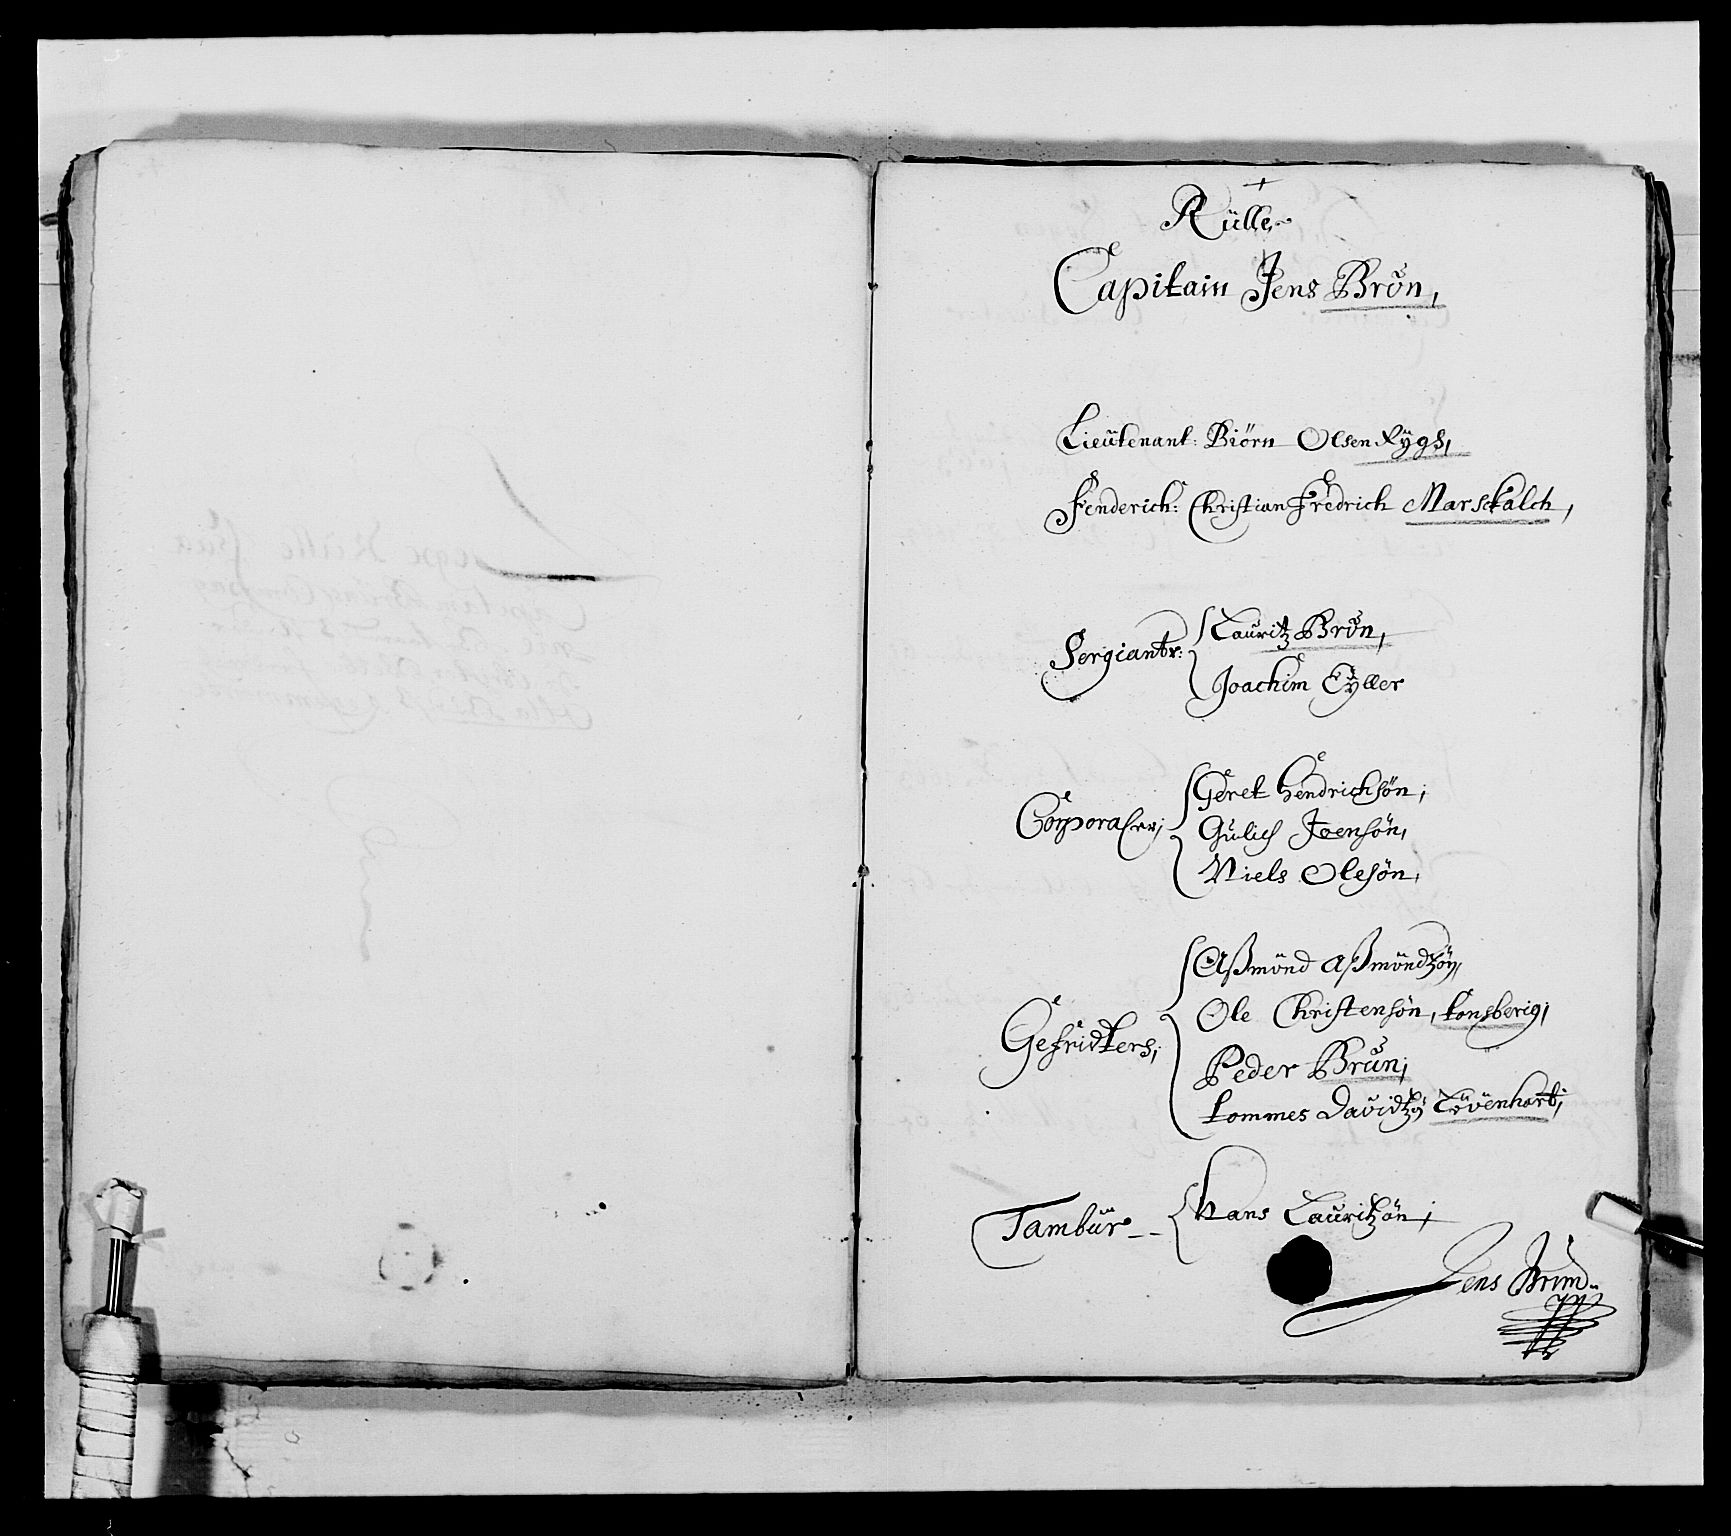 Rülle
Capitain Jens Brůn,
Lieütenant: Biörn Olsen Rÿgh,
Fenderich: Christian Fredrich Marsckalch,
Sergianter: Lauritz Brůn,
Joachim Eÿller
Corporaler; Geret Hendrichsön;
Gulich Joensön,
Niels Olesön,
Gefridters; Aßmönd Aßmöndsön,
Ole Christensön, tonsberig;
Peder Brůn;
tommes Davidtzön Lövenhart;
Tambür -- Hans Lauritzön;
Jens Brun